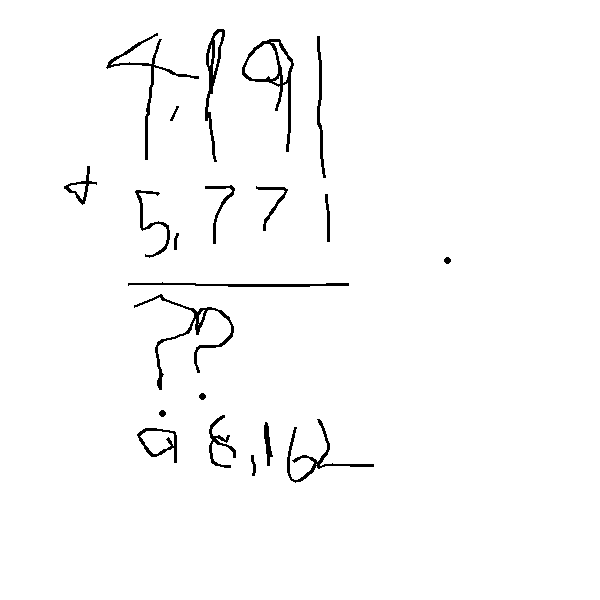 4,191
+ 5,771
??
98,162